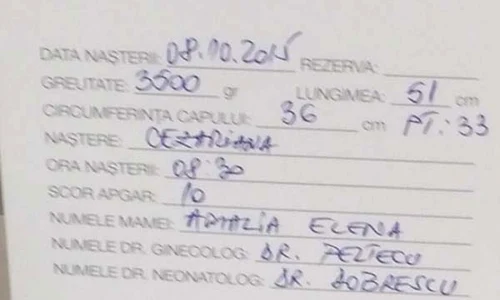 DATA NAȘTERII: 08.10.2015 REZERVA:
GREUTATE: 3500 gr LUNGIMEA: 51 cm
CIRCUMFERINȚA CAPULUI: 36 cm PT.: 33
NAȘTERE: CEZARIANA
ORA NAȘTERII: 08:30
SCOR APGAR: 10
NUMELE MAMEI: AMALIA ELENA
NUMELE DR. GINECOLOG: DR. PELTECU
NUMELE DR. NEONATOLOG: DR. DOBRESCU